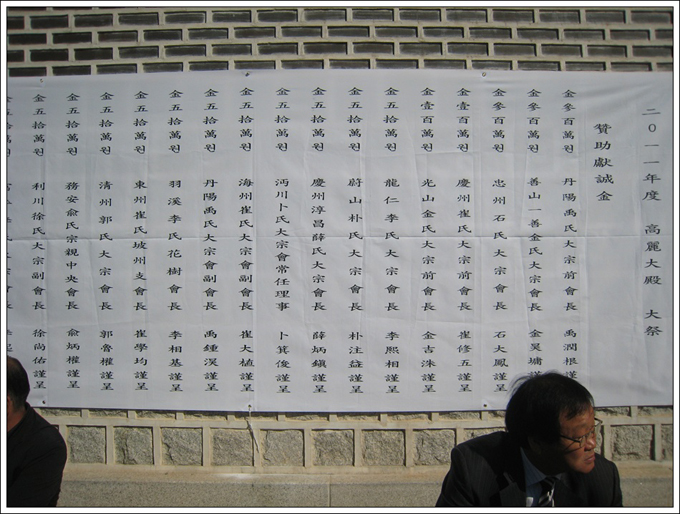 二０一一年度 高麗大殿 大祭
贊助獻誠金
金參百萬원 丹陽禹氏大宗前會長 禹潤根謹呈
金參百萬원 善山一善金氏大宗會長 金昊墉謹呈
金參百萬원 忠州石氏大宗會長 石大鳳謹呈
金壹百萬원 慶州崔氏大宗前會長 崔修五謹呈
金壹百萬원 光山金氏大宗前會長 金吉洙謹呈
金五拾萬원 龍仁李氏大宗會長 李熙相謹呈
金五拾萬원 蔚山朴氏大宗會長 朴注益謹呈
金五拾萬원 慶州淳昌薛氏大宗會長 薛炳鎭謹呈
金五拾萬원 沔川卜氏大宗會常任理事 卜箕俊謹呈
金五拾萬원 海州崔氏大宗會副會長 崔大植謹呈
金五拾萬원 丹陽禹氏大宗會副會長 禹鍾淏謹呈
金五拾萬원 羽溪李氏花樹會長 李相基謹呈
金五拾萬원 東州崔氏坡州支會長 崔學均謹呈
金五拾萬원 清州郭氏大宗會長 郭魯權謹呈
金五拾萬원 務安兪氏宗親中央會長 兪炳權謹呈
金五拾萬원 利川徐氏大宗副會長 徐尚佑謹呈
金五拾萬원